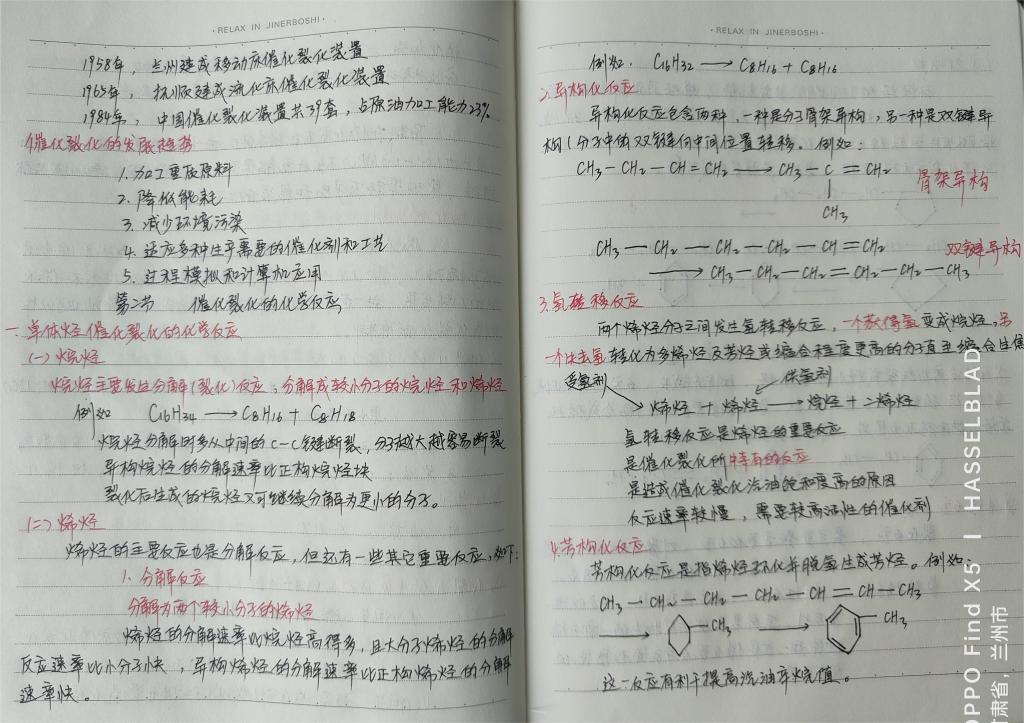 ·RELAX IN JINERBOSHI·
1958年，兰州建成移动床催化裂化装置
1965年，抚顺建成流化床催化裂化装置
1984年，中国催化裂化装置共39套，占原油加工能力23%
催化裂化的发展趋势
1.加工重质原料
2.降低能耗
3.减少环境污染
4.适应多种生产需要的催化剂和工艺
5.过程模拟和计算机应用
第二节 催化裂化的化学反应
一.单体烃催化裂化的化学反应
(一)烷烃
烷烃主要发生分解(裂化)反应，分解成较小分子的烷烃和烯烃
例如 C16H34 → C8H16 + C8H18
烷烃分解时多从中间的C-C键断裂，分子越大越容易断裂
异构烷烃的分解速率比正构烷烃块
裂化后生成的烷烃又可继续分解为更小的分子。
(二)烯烃
烯烃的主要反应也是分解反应，但还有一些其它重要反应，如下：
1.分解反应
分解为两个较小分子的烯烃
烯烃的分解速率比烷烃高得多，且大分子烯烃的分解
反应速率比小分子快，异构烯烃的分解速率比正构烯烃的分解
速率快。
·RELAX IN JINERBOSHI·
例如. C16H32 → C8H16 + C8H16
2.异构化反应
异构化反应包含两种，一种是分子骨架异构，另一种是双键异
构(分子中的双键向中间位置转移。例如：
CH3-CH2-CH=CH2 → CH3-C=CH2 骨架异构
CH3
CH3-CH2-CH2-CH2-CH=CH2 双键异构
→ CH3-CH2-CH=CH2-CH2-CH3
3.氢转移反应
两个烯烃分子之间发生氢转移反应，一个获得氢变成烷烃，另
一个失去氢转化为多烯烃及芳烃或缩合程度更高的分子直至缩合生焦
受氢剂 供氢剂
烯烃 + 烯烃 → 烷烃 + 二烯烃
氢转移反应是烯烃的重要反应
是催化裂化所特有的反应
是造成催化裂化汽油饱和度高的原因
反应速率较慢，需要较高活性的催化剂
4.芳构化反应
芳构化反应是指烯烃环化并脱氢生成芳烃。例如：
CH3-CH2-CH2-CH2-CH=CH-CH3
→ -CH3 → -CH3
这一反应有利于提高汽油辛烷值。
OPPO Find X5 | HASSELBLAD
甘肃省，兰州市